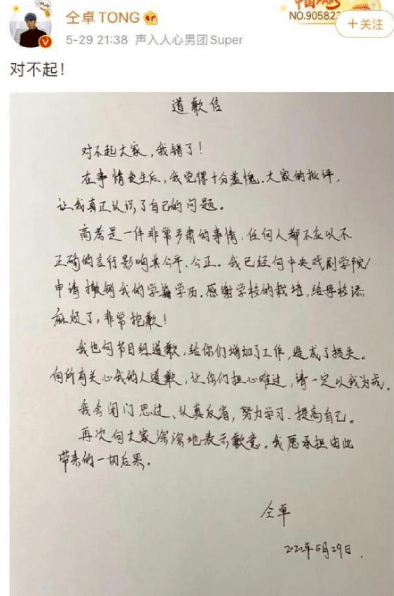 仝卓TONG
NO.90582
+关注
5-29 21:38 声入人心男团Super
对不起！
道歉信
对不起大家,我错了！
在事情发生后,我觉得十分羞愧.大家的批评,
让我真正认识了自己的问题。
高考是一件非常严肃的事情,任何人都不应以不
正确的言行影响其公平、公正。我已经向中央戏剧学院
申请撤销我的学籍学历.感谢学校的栽培,给母校添
麻烦了,非常抱歉！
我也向节目组道歉,给你们增加了工作,造成了损失。
向所有关心我的人道歉,让你们担心难过,请一定以我为戒。
我会闭门思过、认真反省,努力学习、提高自己。
再次向大家深深地表示歉意。我愿承担由此
带来的一切后果。
仝卓
2020年5月29日.